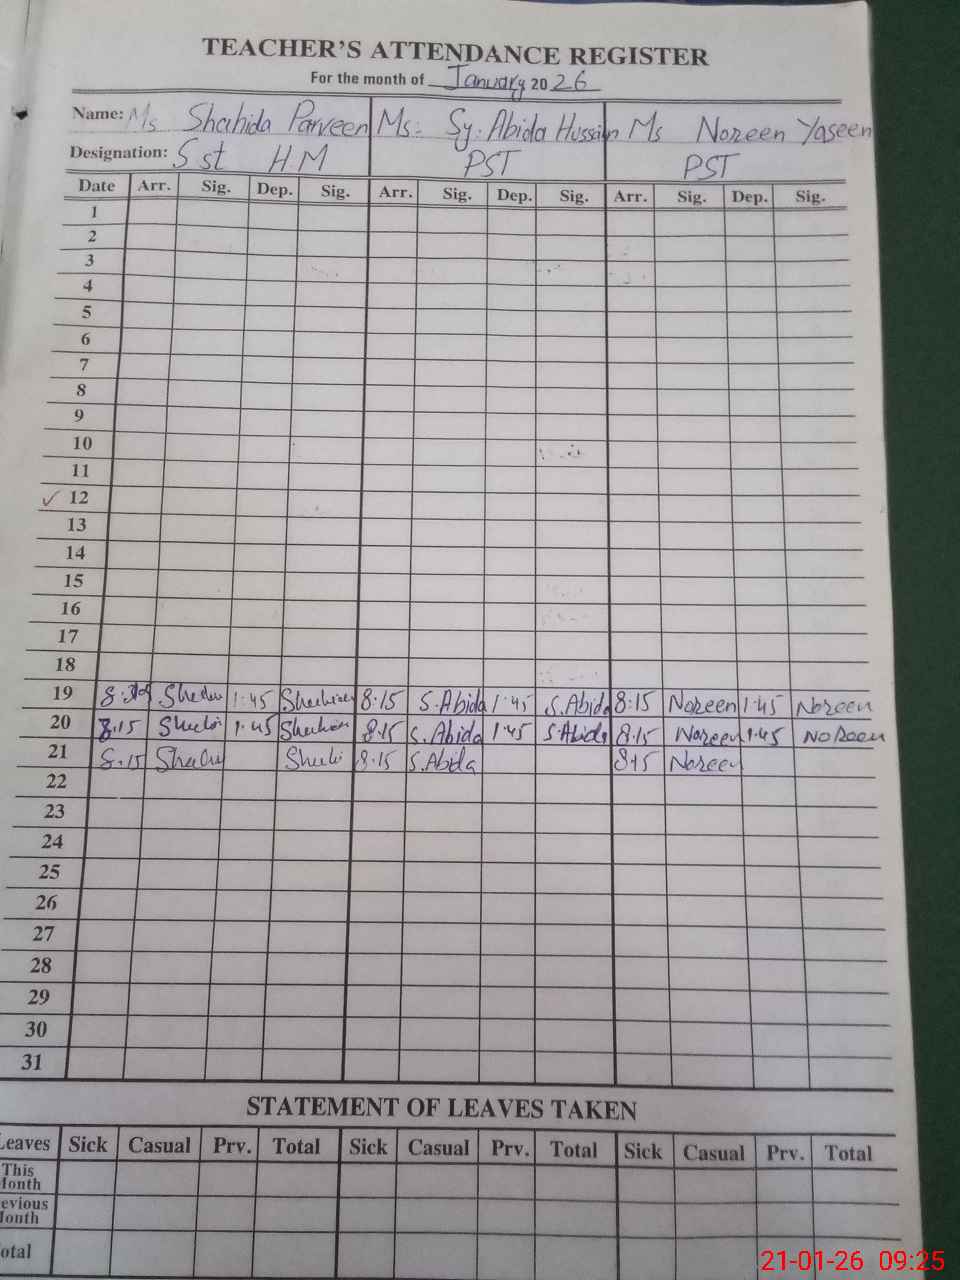 TEACHER'S ATTENDANCE REGISTER
For the month of January 2026
Name: Ms Shahida Parveen Ms: Sy: Abida Hussain Ms Noreen Yaseen
Designation: Sst HM PST PST
Date Arr. Sig. Dep. Sig. Arr. Sig. Dep. Sig. Arr. Sig. Dep. Sig.
1
2
3
4
5
6
7
8
9
10
11
✓ 12
13
14
15
16
17
18
19 1:45 8:15 S.Abida 1:45 S.Abida 8:15 Noreen 1:45 Noreen
20 8:15 1:45 8:15 S.Abida 1:45 S.Abida 8:15 Noreen 1:45 Noreen
21 8:15 8:15 S.Abida 8:15 Noreen
22
23
24
25
26
27
28
29
30
31
STATEMENT OF LEAVES TAKEN
Leaves Sick Casual Prv. Total Sick Casual Prv. Total Sick Casual Prv. Total
This
Month
evious
Month
otal
21-01-26 09:25